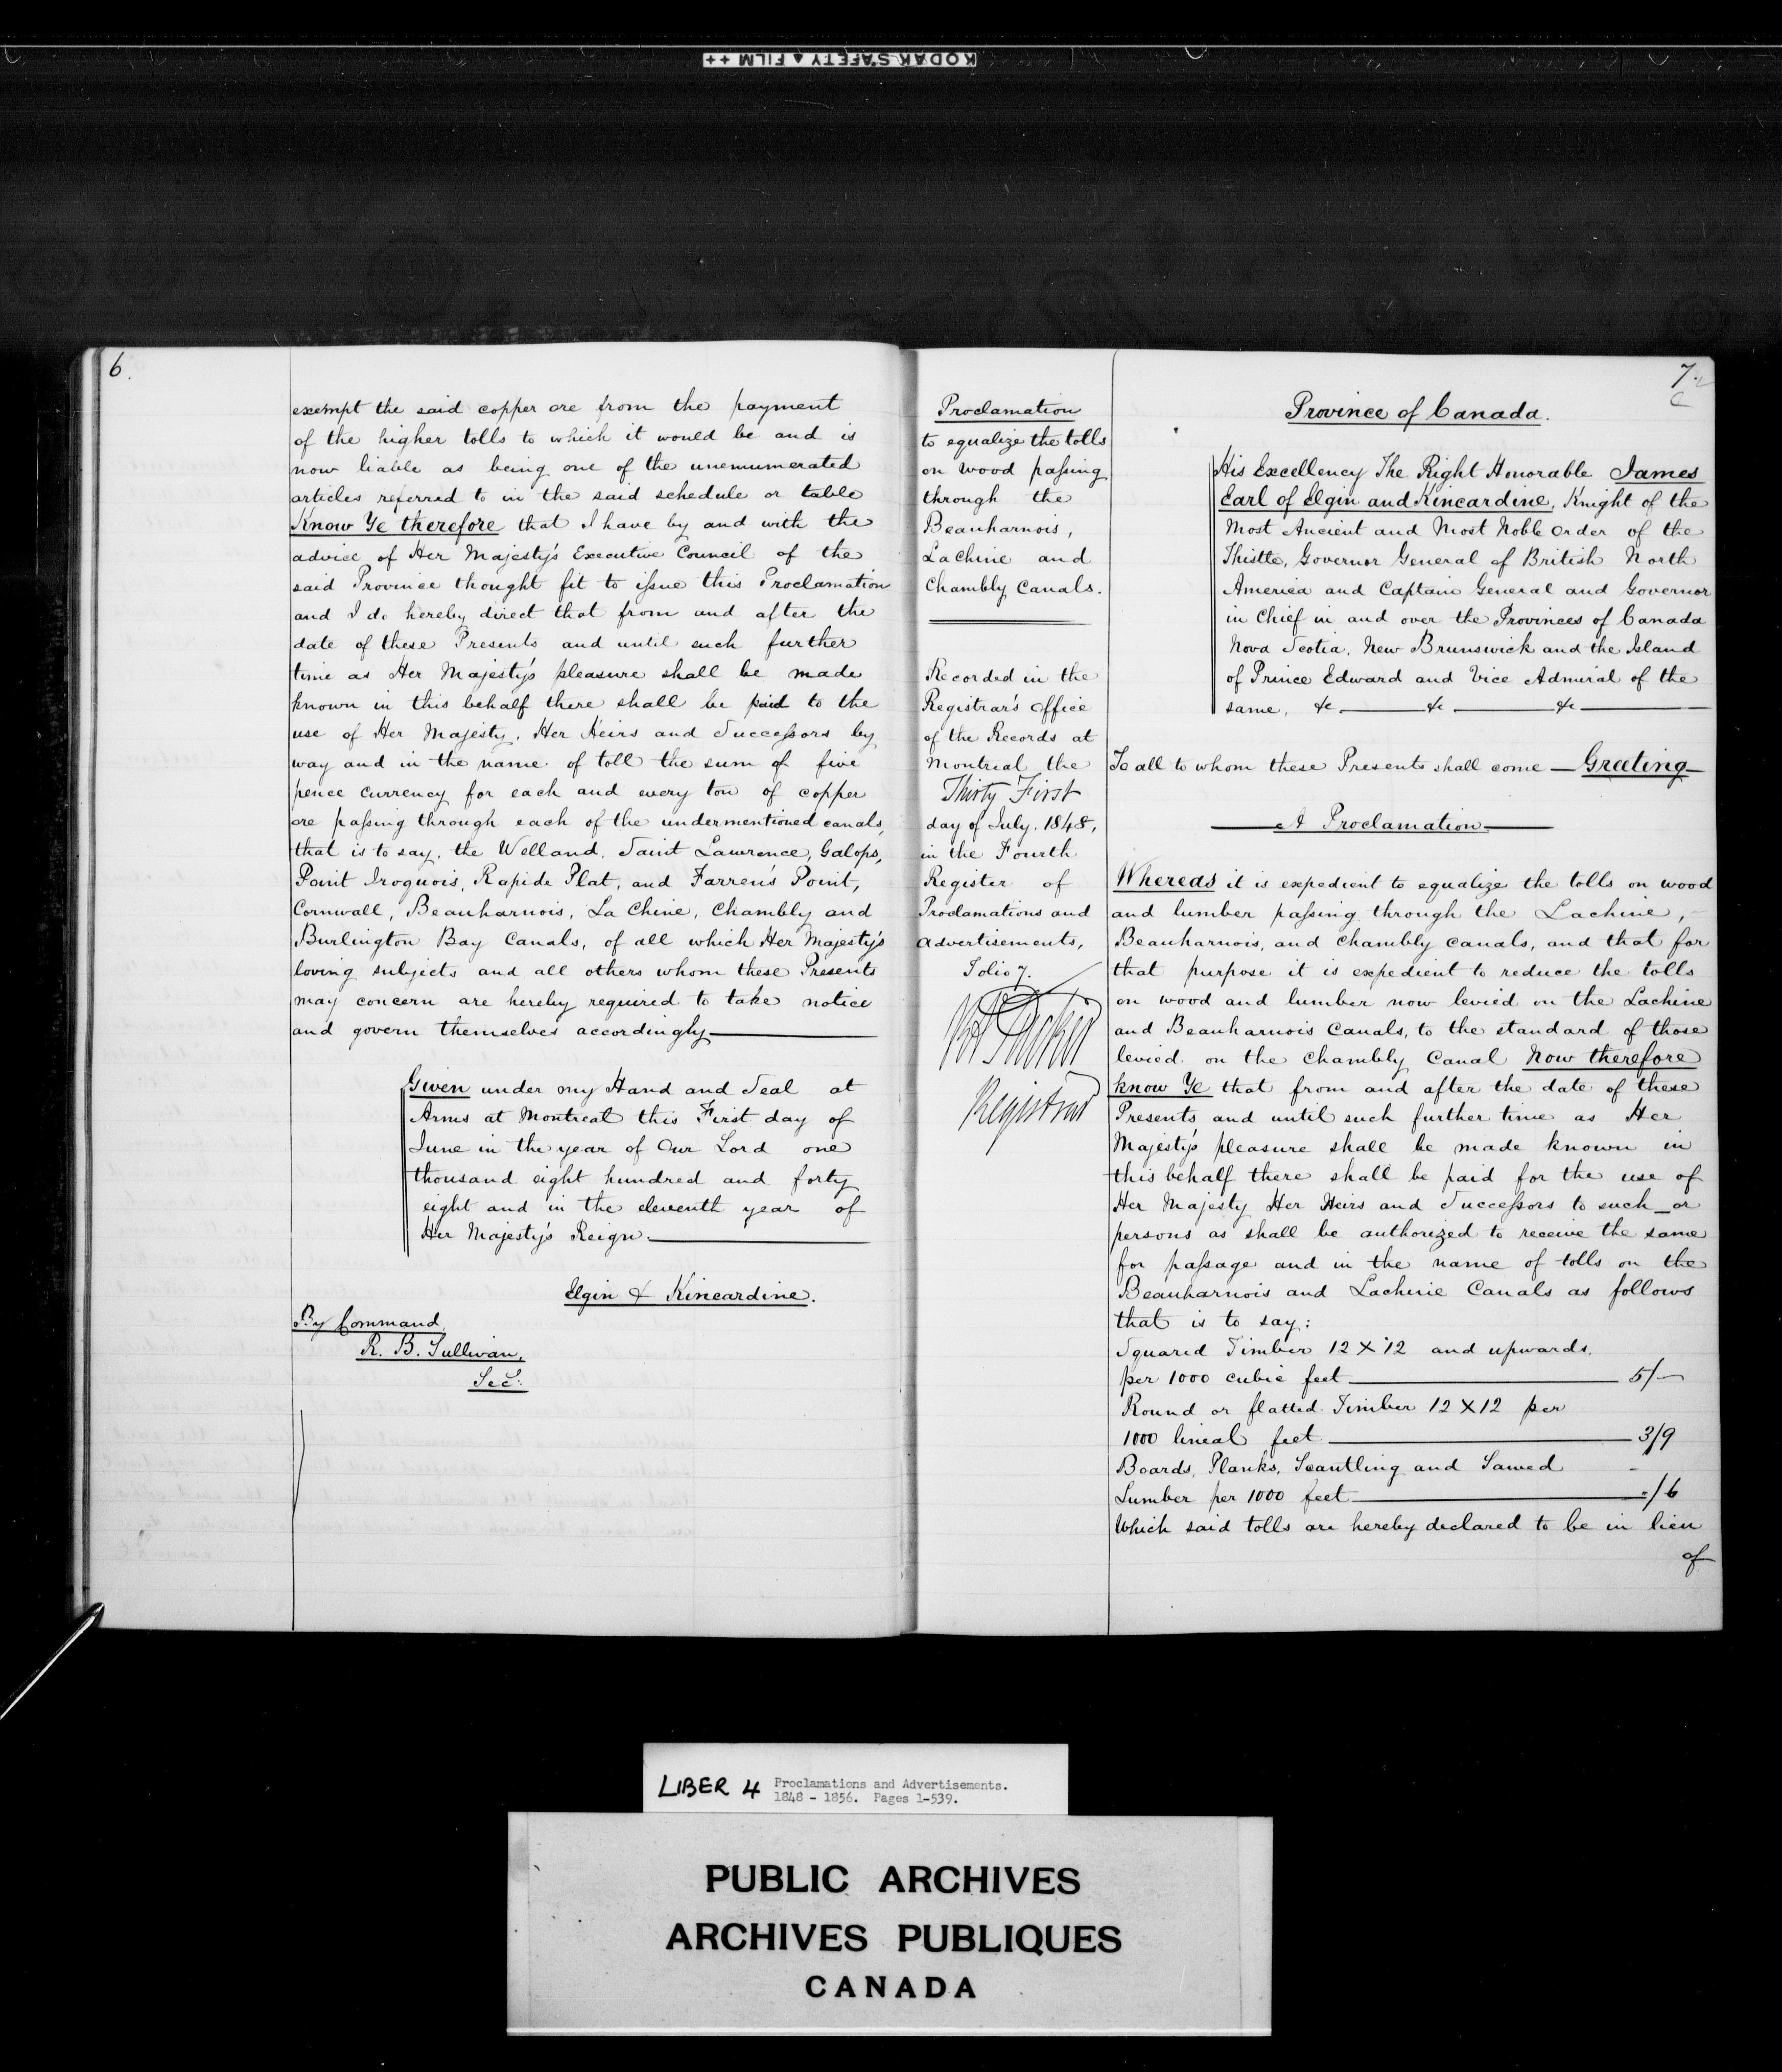 KODAK SAFETY ▲ FILM ++
6.
exempt the said copper ore from the payment
of the higher tolls to which it would be and is
now liable as being one of the unenumerated
articles referred to in the said schedule or table
Know Ye therefore that I have by and with the
advice of Her Majesty's Executive Council of the
said Province thought fit to issue this Proclamation
and I do hereby direct that from and after the
date of these Presents and until such further
time as Her Majesty's pleasure shall be made
known in this behalf there shall be paid to the
use of Her Majesty, Her Heirs and Successors by
way and in the name of toll the sum of five
pence currency for each and every ton of copper
ore passing through each of the undermentioned canals,
that is to say, the Welland, Saint Lawrence, Galops,
Point Iroquois, Rapide Plat, and Farren's Point,
Cornwall, Beauharnois, La Chine, Chambly and
Burlington Bay Canals, of all which Her Majesty's
loving subjects and all others whom these Presents
may concern are hereby required to take notice
and govern themselves accordingly
Given under my Hand and Seal at
Arms at Montreal this First day of
June in the year of Our Lord one
thousand eight hundred and forty
eight and in the eleventh year of
Her Majesty's Reign.
Elgin & Kincardine.
By Command,
R. B. Sullivan,
Sec:
Proclamation
to equalize the tolls
on wood passing
through the
Beauharnois,
LaChine and
Chambly Canals.
Recorded in the
Registrar's Office
of the Records at
Montreal the
Thirty First
day of July, 1848,
in the Fourth
Register of
Proclamations and
Advertisements,
Folio 7.
Registrar
7
Province of Canada.
His Excellency The Right Honorable James
Earl of Elgin and Kincardine, Knight of the
Most Ancient and Most Noble Order of the
Thistle, Governor General of British North
America and Captain General and Governor
in Chief in and over the Provinces of Canada
Nova Scotia, New Brunswick and the Island
of Prince Edward and Vice Admiral of the
same, &c &c &c
To all to whom these Presents shall come — Greeting
A Proclamation
Whereas it is expedient to equalize the tolls on wood
and lumber passing through the Lachine,
Beauharnois, and Chambly Canals, and that for
that purpose it is expedient to reduce the tolls
on wood and lumber now levied on the Lachine
and Beauharnois Canals, to the standard of those
levied on the Chambly Canal Now therefore
know Ye that from and after the date of these
Presents and until such further time as Her
Majesty's pleasure shall be made known in
this behalf there shall be paid for the use of
Her Majesty Her Heirs and Successors to such or
persons as shall be authorized to receive the same
for passage and in the name of tolls on the
Beauharnois and Lachine Canals as follows
that is to say:
Squared Timber 12 X 12 and upwards,
per 1000 cubic feet 5/-
Round or flatted Timber 12 X 12 per
1000 lineal feet 3/9
Boards, Planks, Scantling and Sawed
Lumber per 1000 feet "/6
Which said tolls are hereby declared to be in lieu
of
LIBER 4 Proclamations and Advertisements.
1848 - 1856. Pages 1-539.
PUBLIC ARCHIVES
ARCHIVES PUBLIQUES
CANADA